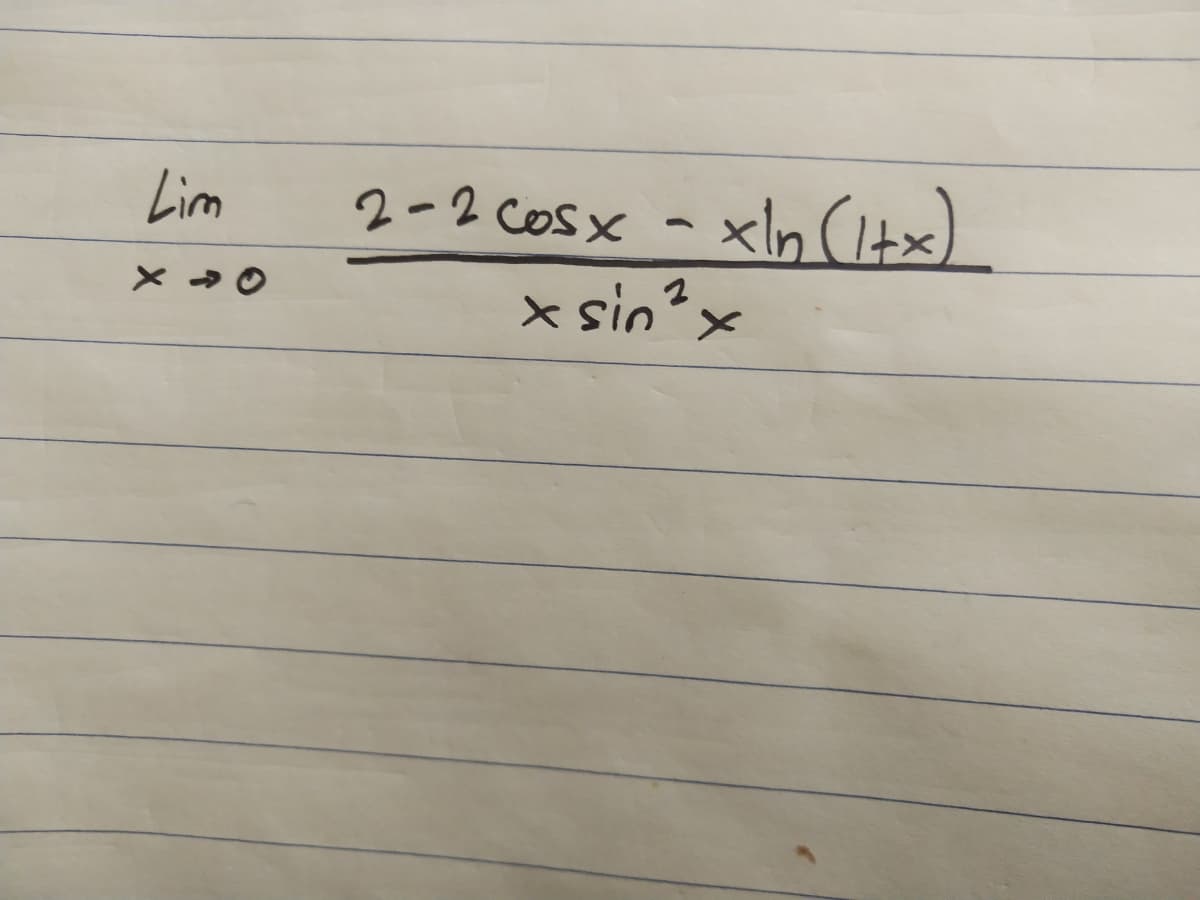 Lim 2-2 cosx - xln(1+x)
x → 0 x sin²x